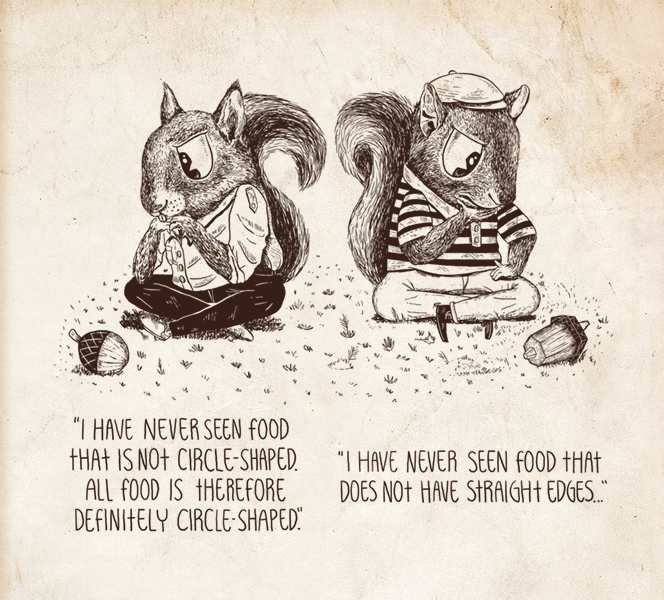 "I HAVE NEVER SEEN FOOD
THAT IS NOT CIRCLE-SHAPED.
ALL FOOD IS THEREFORE
DEFINITELY CIRCLE-SHAPED."
"I HAVE NEVER SEEN FOOD THAT
DOES NOT HAVE STRAIGHT EDGES..."